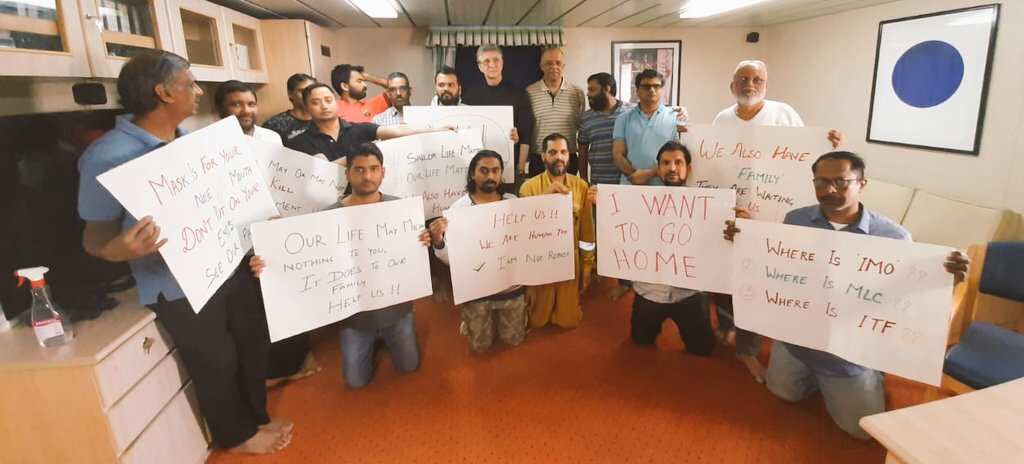 MASK'S FOR YOUR
NOSE MOUTH
DON'T PUT ON YOUR
EYES
SEE OUR
MAY OR MAY NOT
KILL
OUR LIFE MAY MEAN
NOTHING TO YOU,
IT DOES TO OUR
FAMILY
HELP US !!
SAILOR LIFE
OUR LIFE
ALSO HAVE
HELP US !!
WE ARE HUMAN TOO
✓ I AM NOT ROBOT
I WANT
TO GO
HOME
WE ALSO HAVE
FAMILY
THEY ARE WAITING
US
WHERE IS 'IMO' ??
WHERE IS MLC ??
WHERE IS ITF ??